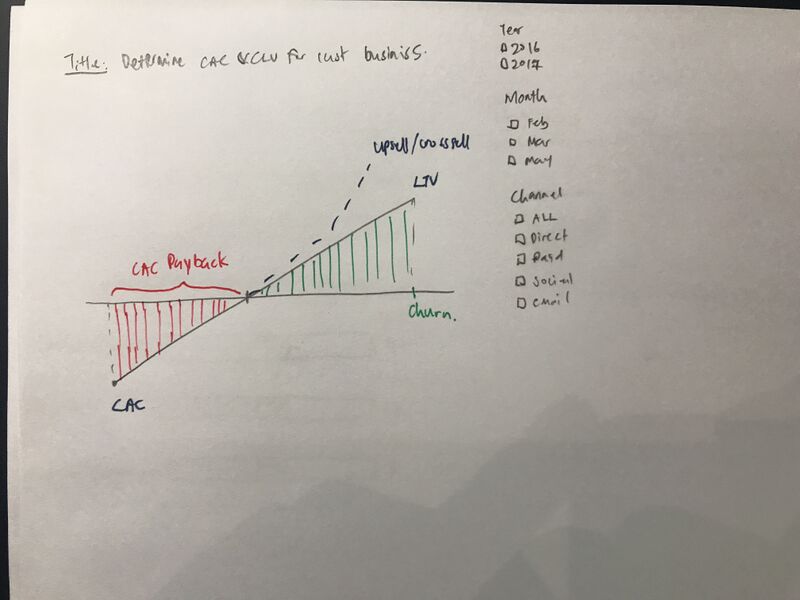 Title: Determine CAC & CLV for cust business.
Year
2016
2017
Month
Feb
Mar
May
Channel
ALL
Direct
Paid
Social
email
upsell/crossell
LTV
CAC Payback
churn.
CAC